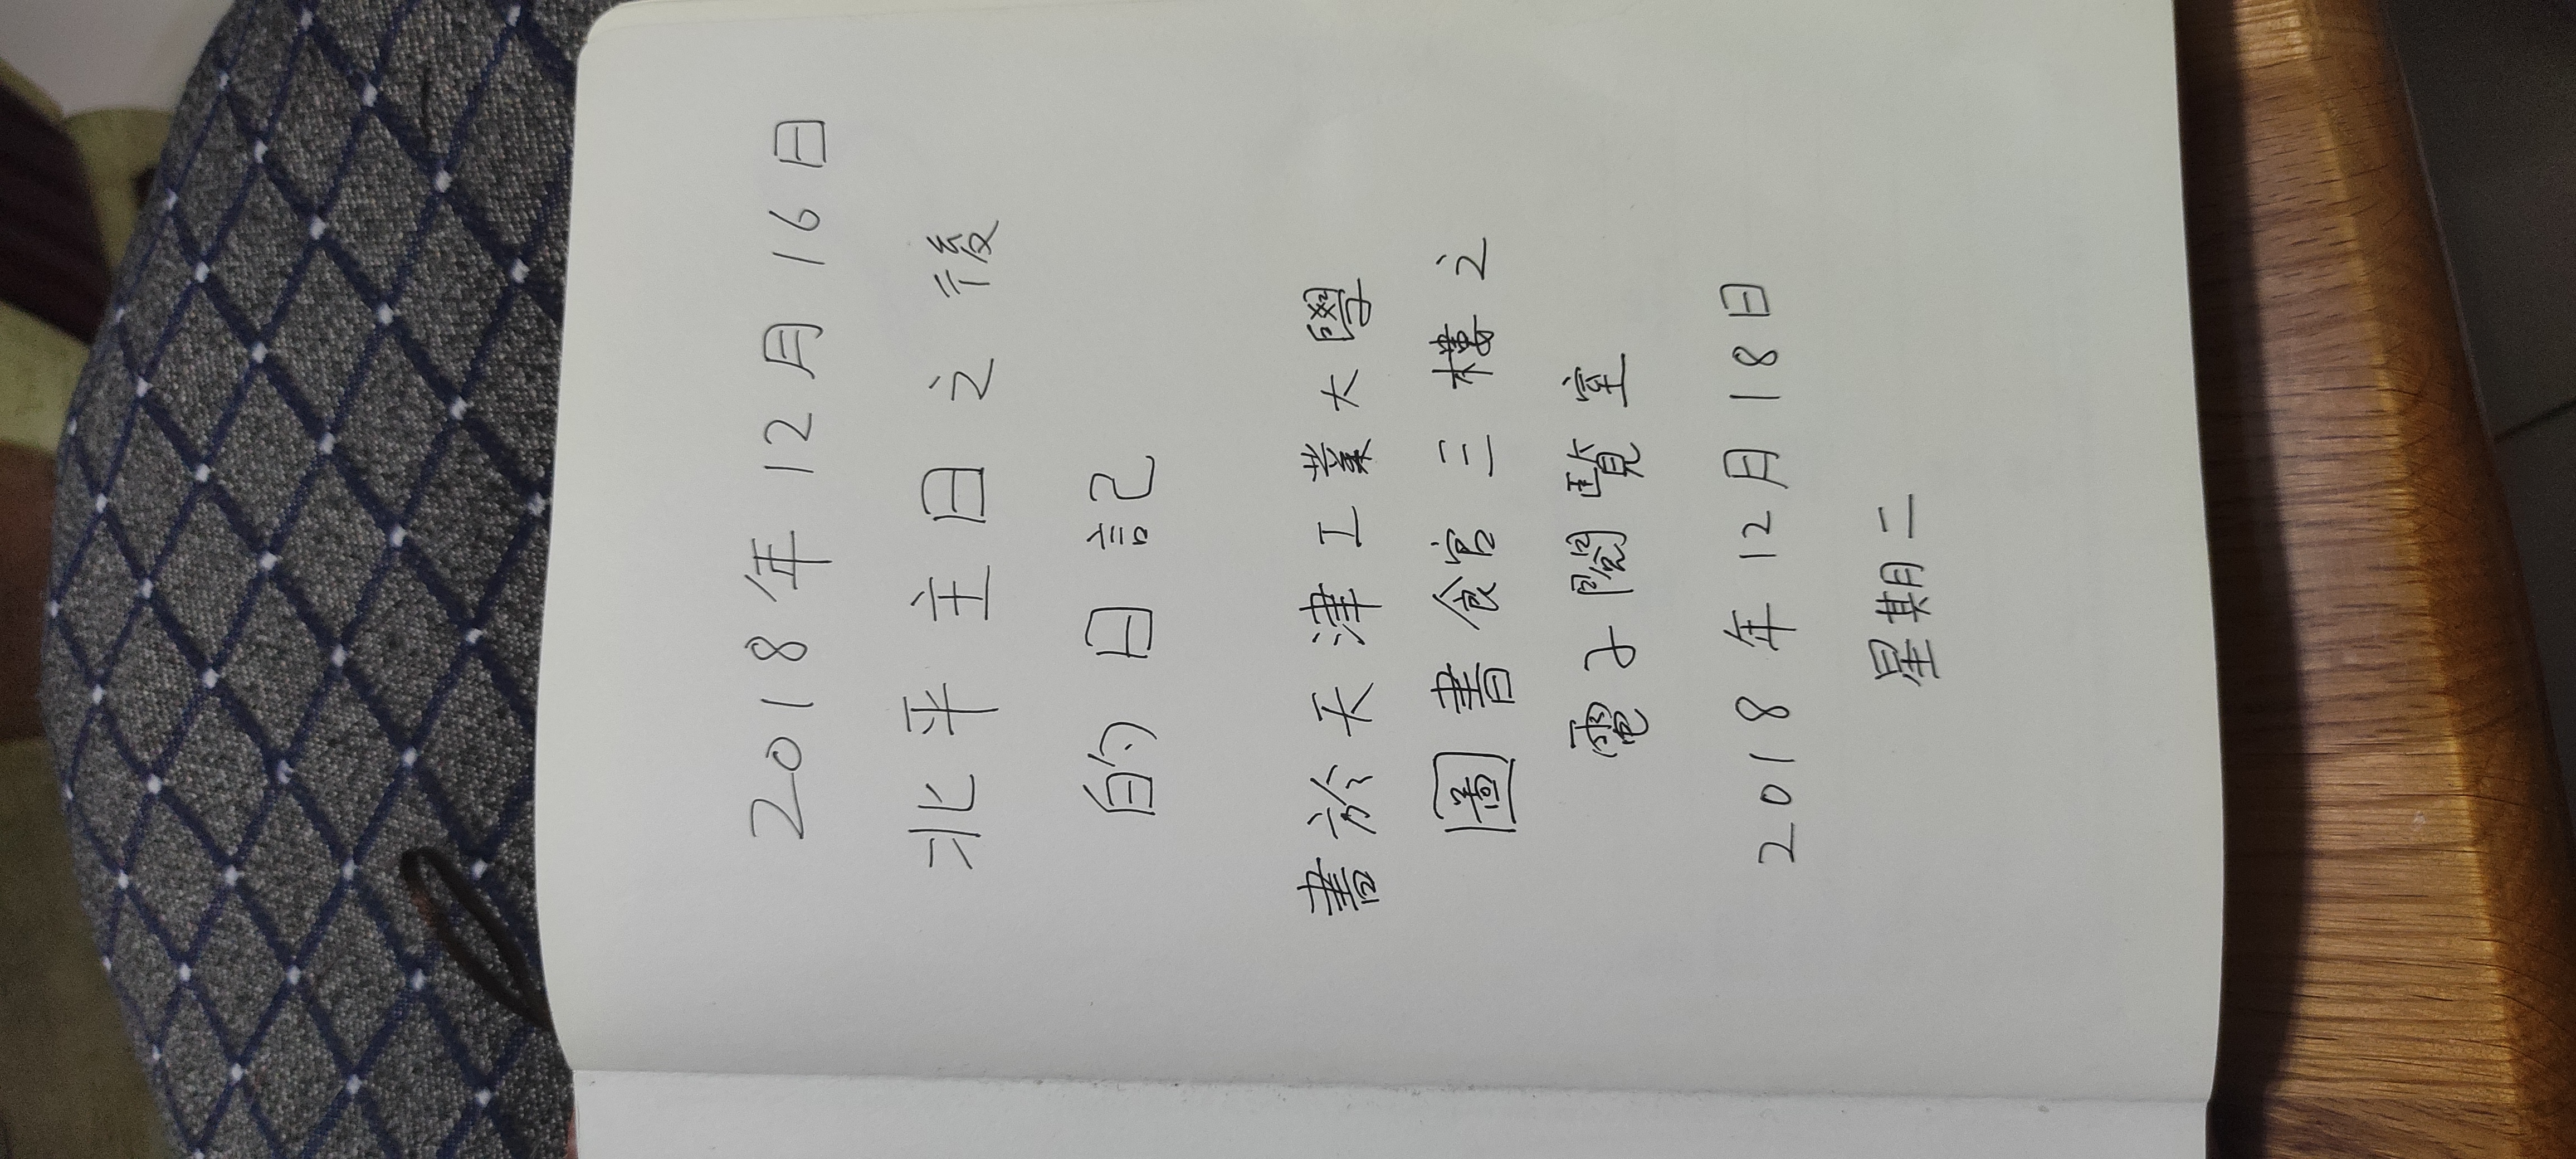 2018年12月16日
北平主日之後
的日記
書於天津工業大學
圖書館三樓之
電子閱覽室
2018年12月18日
星期二